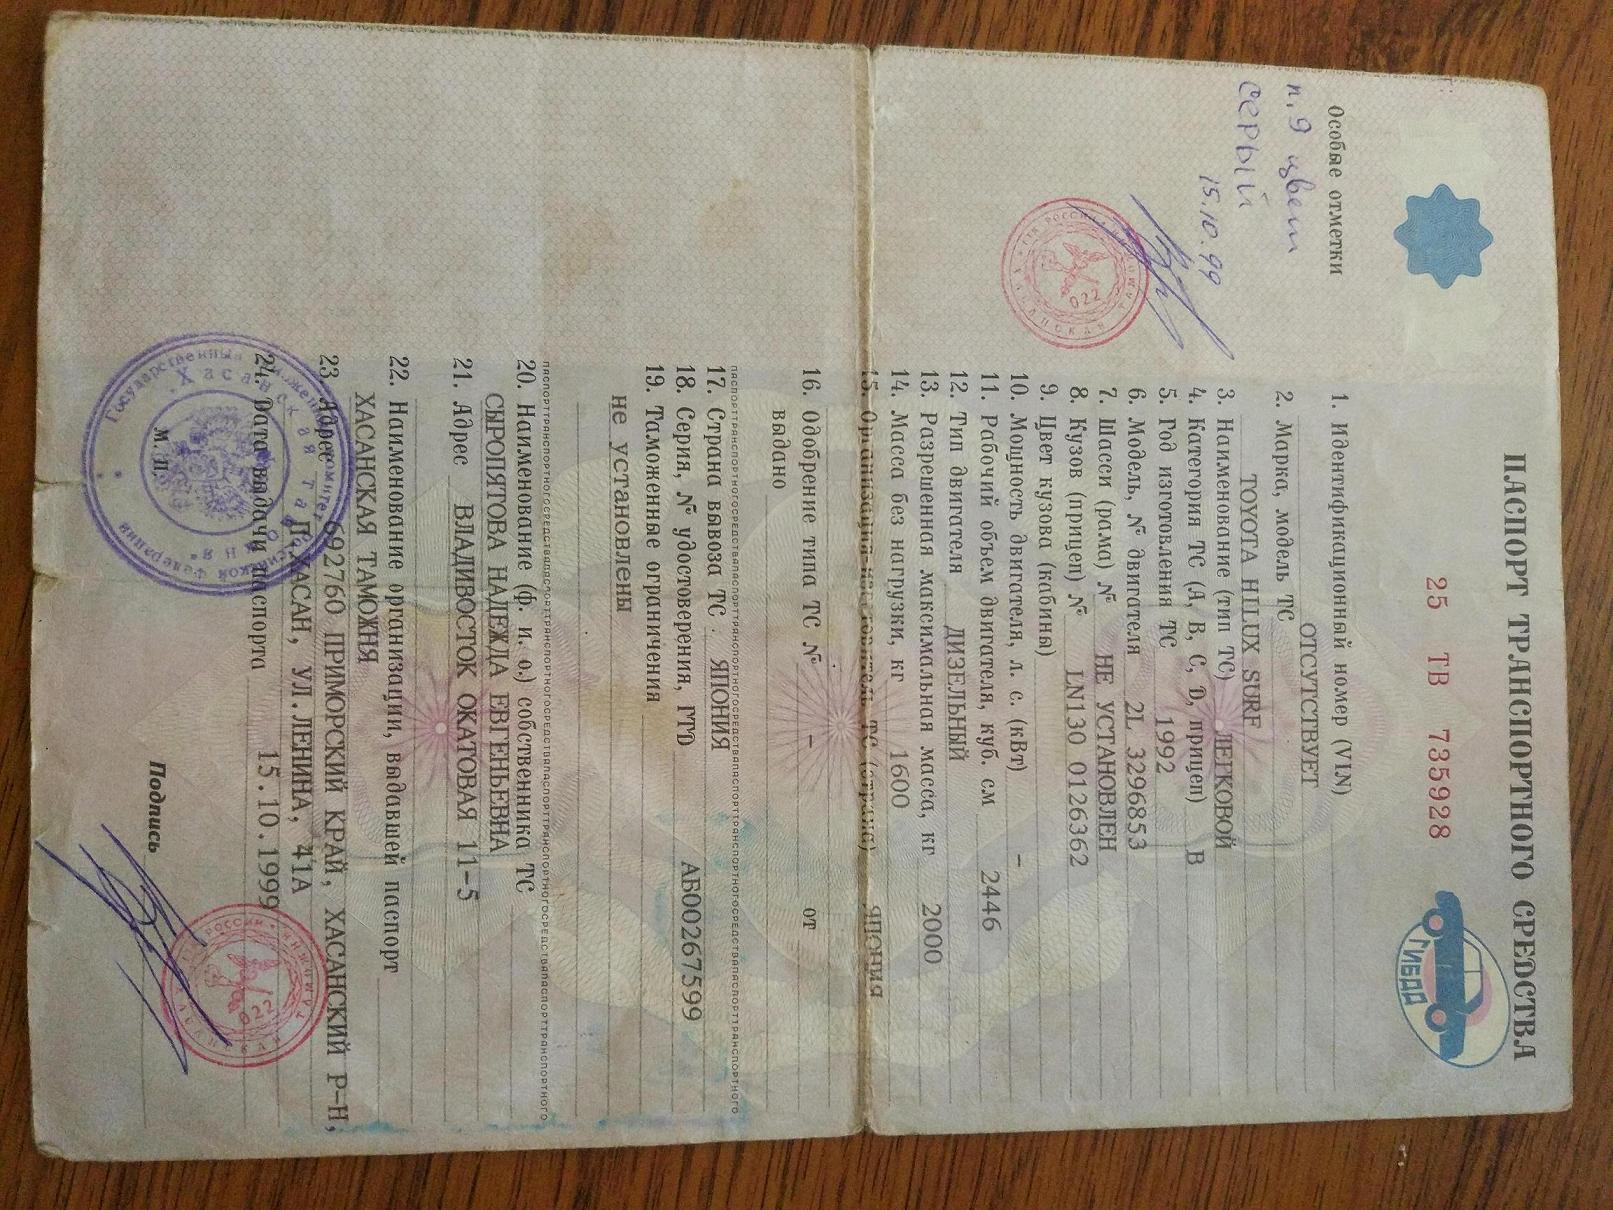 ПАСПОРТ ТРАНСПОРТНОГО СРЕДСТВА
25 ТВ 735928
ГИБДД
Особые отметки
п. 9 цвет
СЕРЫЙ
15.10.99
1. Идентификационный номер (VIN)
ОТСУТСТВУЕТ
2. Марка, модель ТС
TOYOTA HILUX SURF
3. Наименование (тип ТС) ЛЕГКОВОЙ
4. Категория ТС (А, В, С, D, прицеп) В
5. Год изготовления ТС 1992
6. Модель, № двигателя 2L 3296853
7. Шасси (рама) № НЕ УСТАНОВЛЕН
8. Кузов (прицеп) № LN130 0126362
9. Цвет кузова (кабины)
10. Мощность двигателя, л. с. (кВт) –
11. Рабочий объем двигателя, куб. см 2446
12. Тип двигателя ДИЗЕЛЬНЫЙ
13. Разрешенная максимальная масса, кг 2000
14. Масса без нагрузки, кг 1600
15. Организация-изготовитель ТС (страна) ЯПОНИЯ
16. Одобрение типа ТС № – от
выдано
17. Страна вывоза ТС ЯПОНИЯ
18. Серия, № удостоверения, ГТД АБ00267599
19. Таможенные ограничения
не установлены
20. Наименование (ф. и. о.) собственника ТС
СЫРОПЯТОВА НАДЕЖДА ЕВГЕНЬЕВНА
21. Адрес ВЛАДИВОСТОК ОКАТОВАЯ 11-5
22. Наименование организации, выдавшей паспорт
ХАСАНСКАЯ ТАМОЖНЯ
23. Адрес 692760 ПРИМОРСКИЙ КРАЙ, ХАСАНСКИЙ Р-Н,
П.ХАСАН, УЛ.ЛЕНИНА, 41А
24. Дата выдачи паспорта 15.10.1999
М. П.
Подпись
022
022